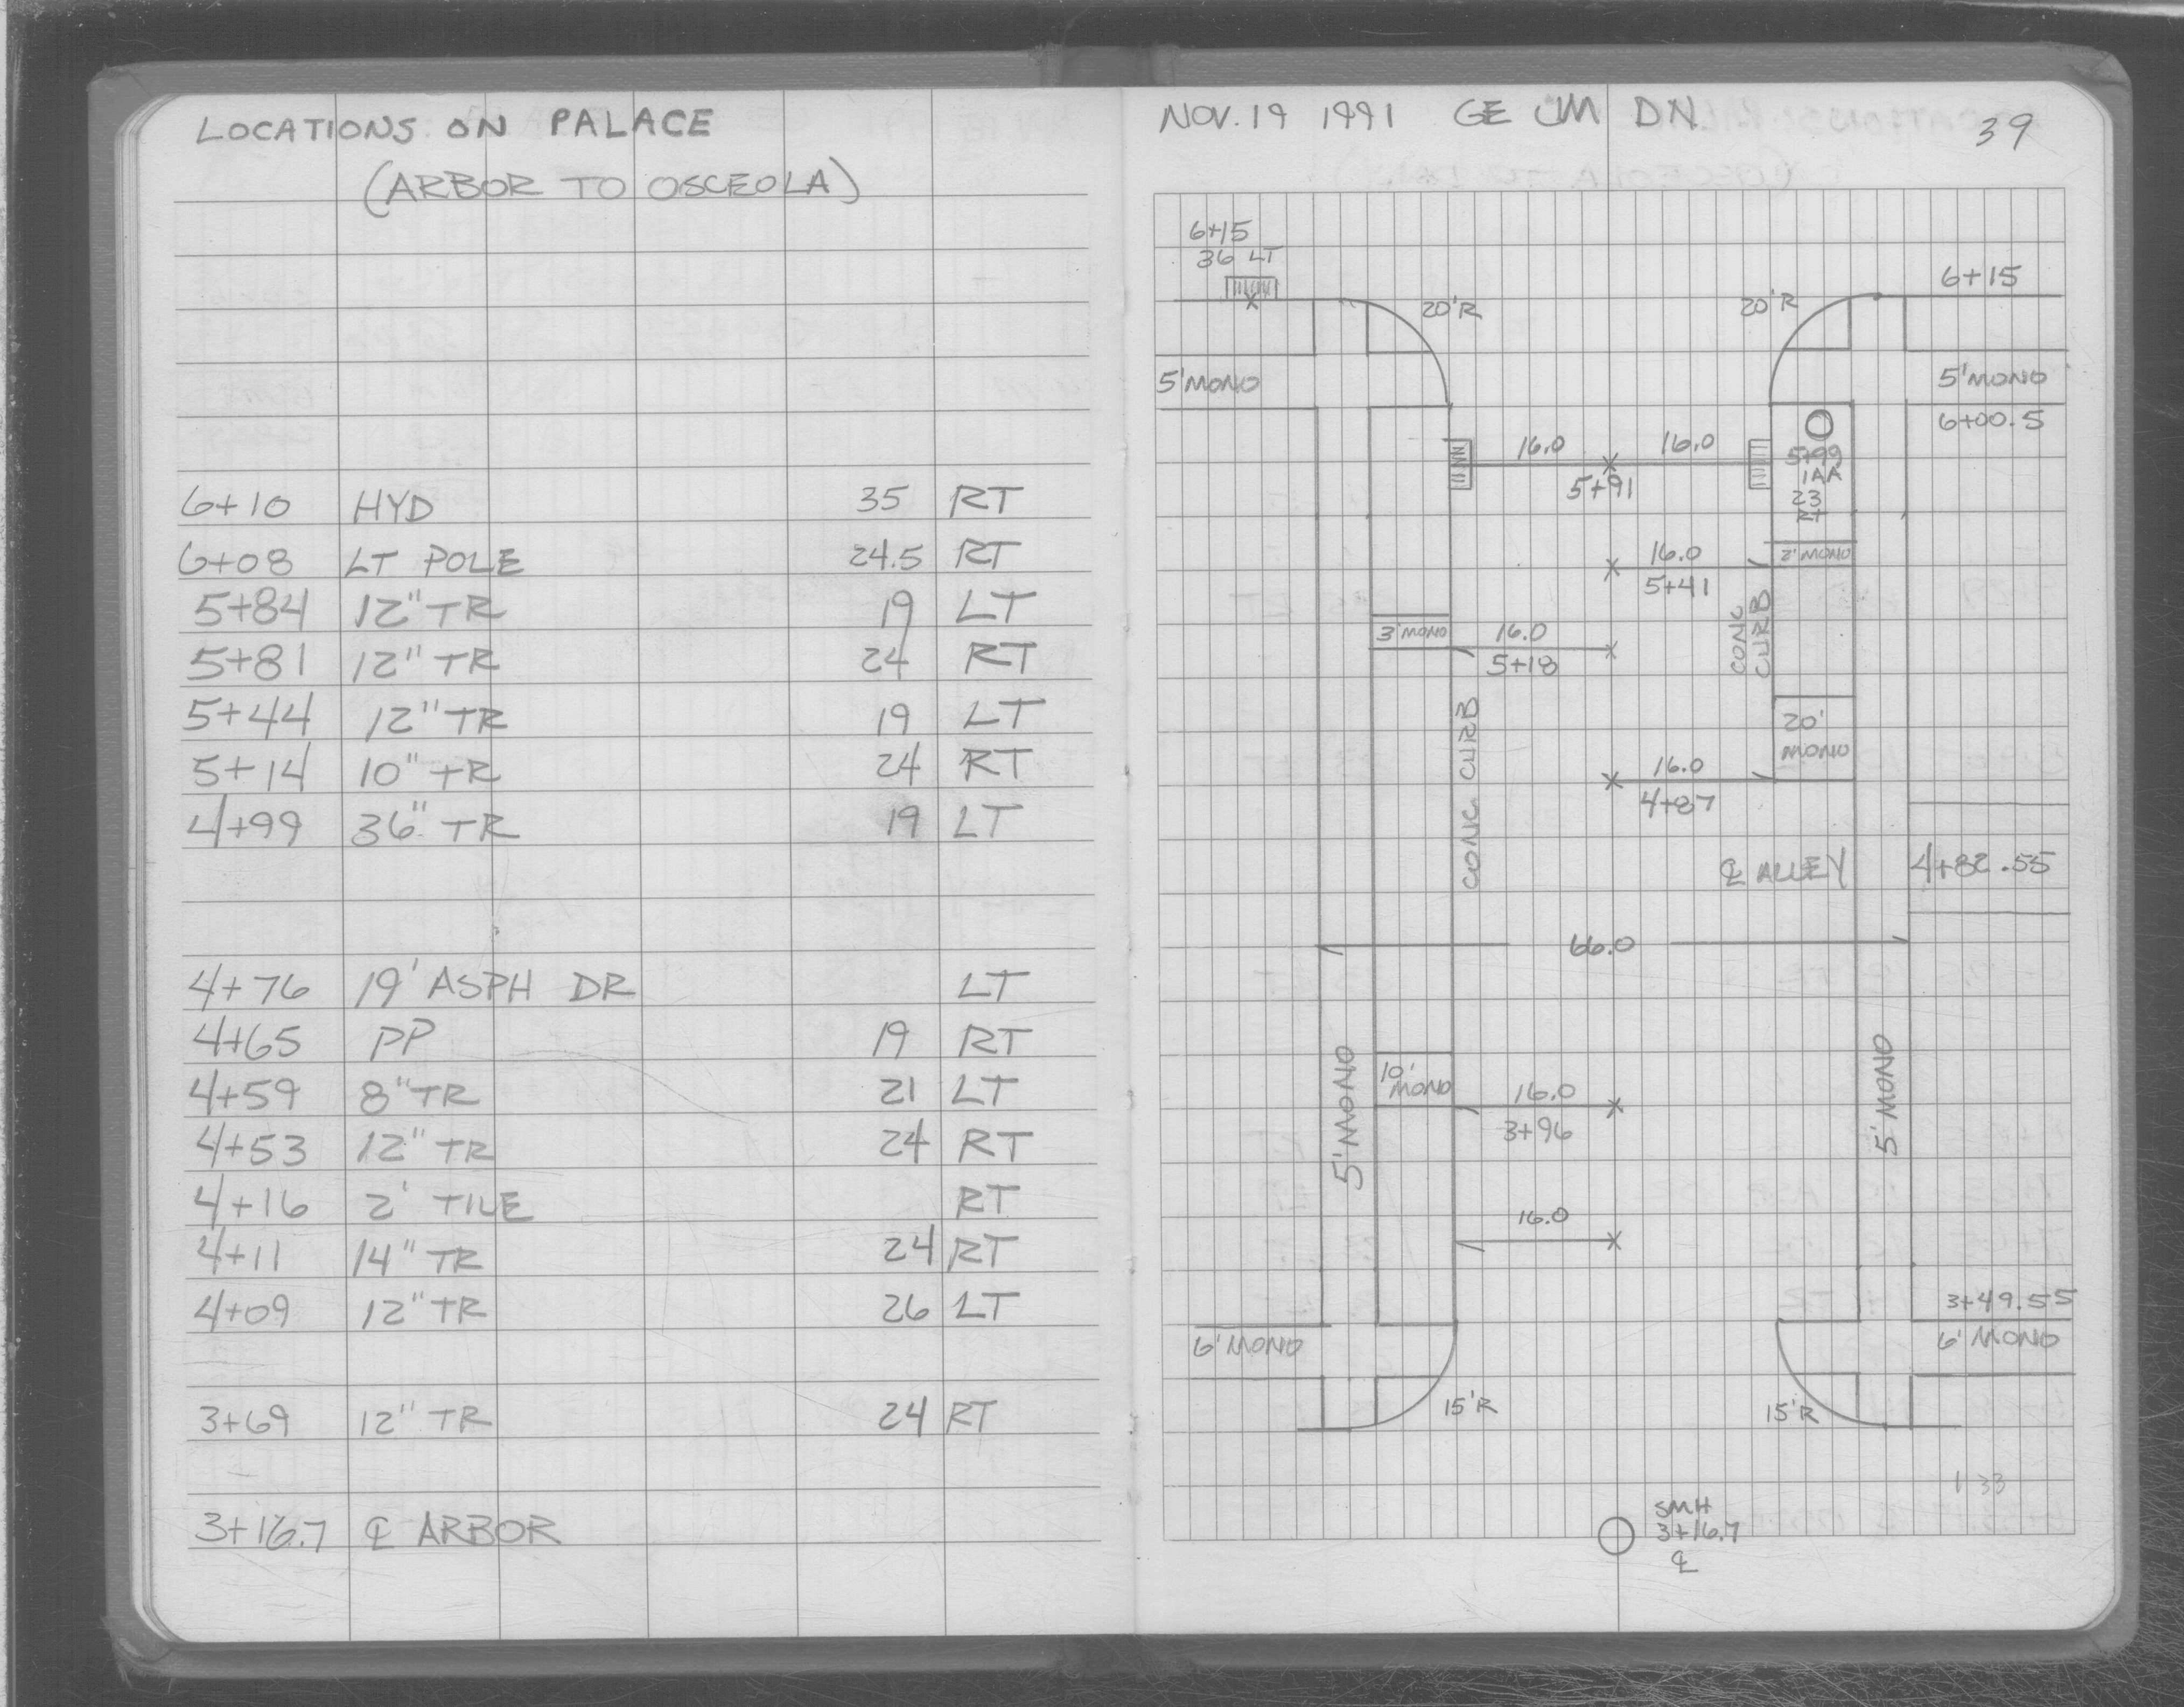 LOCATIONS ON PALACE
(ARBOR TO OSCEOLA)
6+10 HYD 35 RT
6+08 LT POLE 24.5 RT
5+84 12" TR 19 LT
5+81 12" TR 24 RT
5+44 12" TR 19 LT
5+14 10" TR 24 RT
4+99 36" TR 19 LT
4+76 19' ASPH DR LT
4+65 PP 19 RT
4+59 8" TR 21 LT
4+53 12" TR 24 RT
4+16 2' TILE RT
4+11 14" TR 24 RT
4+09 12" TR 26 LT
3+69 12" TR 24 RT
3+16.7 ℄ ARBOR
NOV. 19 1991 GE JM DN
39
6+15
36 LT
20'R
20'R
6+15
5'MONO
5'MONO
6+00.5
16.0
16.0
5+91
5+99
1AA
23
RT
16.0
5+41
2' MONO
3' MONO
16.0
5+18
CONC
CURB
CONC CURB
20'
MONO
16.0
4+87
℄ ALLEY
4+82.55
66.0
5'MONO
10'
MONO
16.0
3+96
5'MONO
16.0
3+49.55
6' MONO
6' MONO
15'R
15'R
1 33
SMH
3+16.7
℄